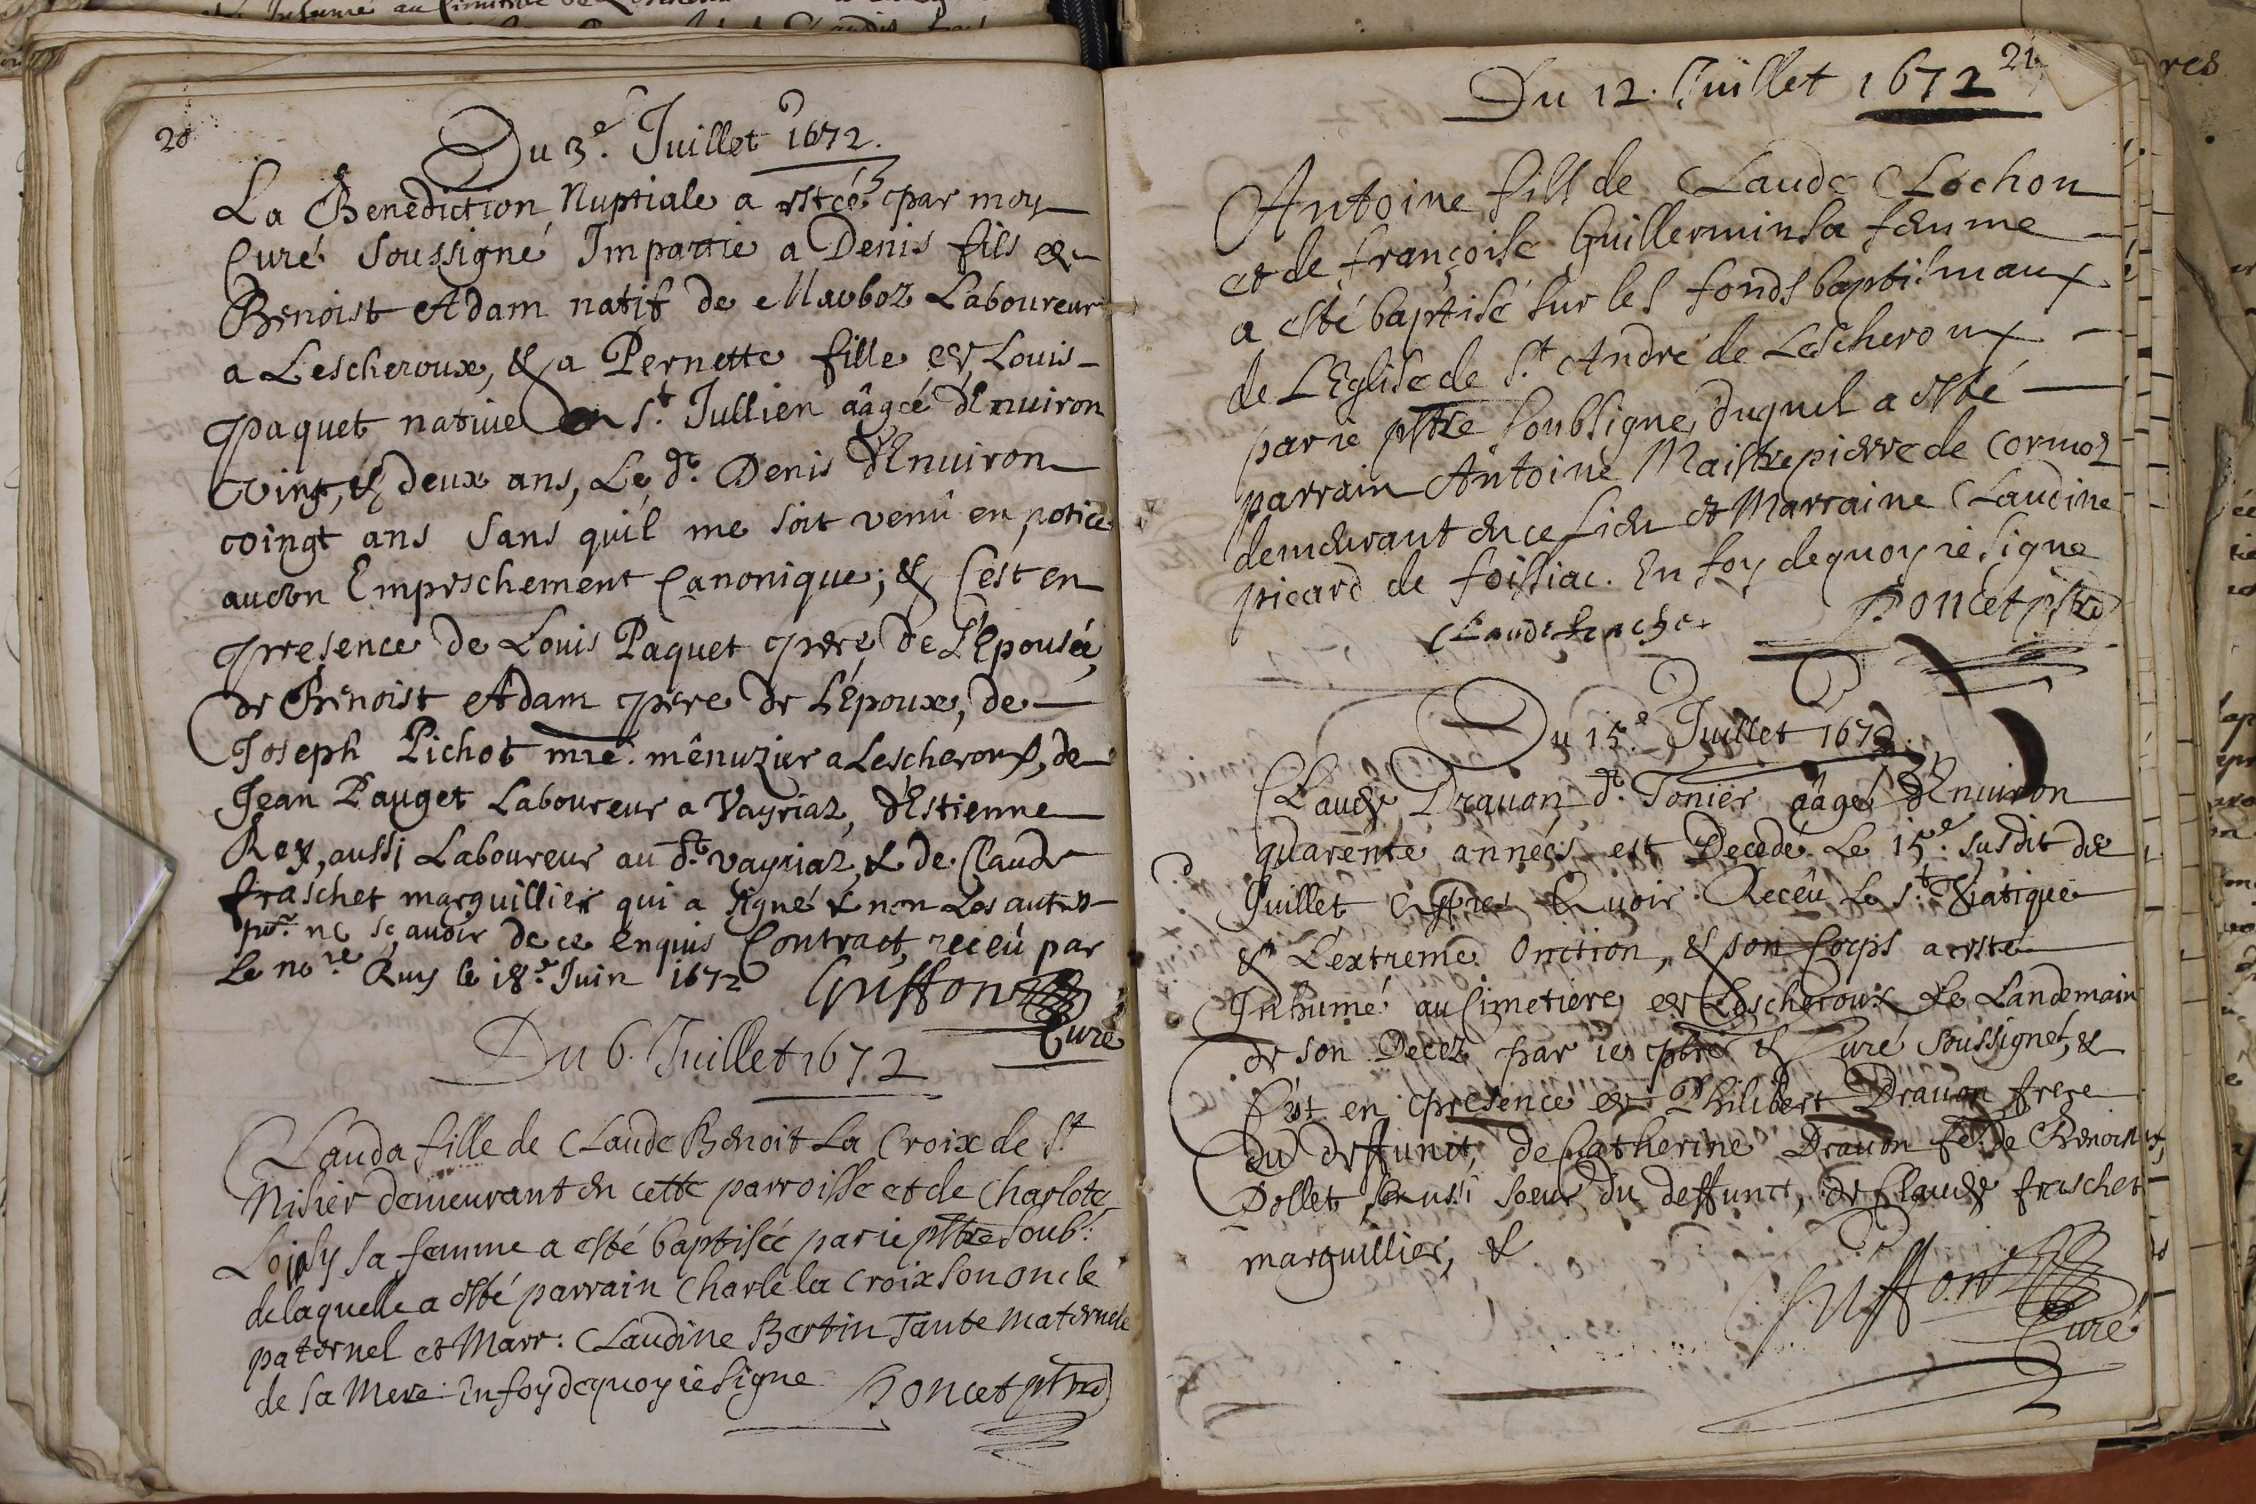 20
Du 3.e Juillet 1672.
La Benediction Nuptiale a estée par moy
Curé soussigné Impartie a Denis fils de
Benoist Adam natif de Marboz Laboureur
a Lescheroux, & a Pernette fille de Louis
paquet native de St. Jullien aâgcé d'Environ
vingt, & deux ans, Le dt. Denis d'Environ
vingt ans sans qu'il me soit venû en notice
aucun Empeschement Canonique; & C'est en
presence de Louis Paquet pere de L'Epousée,
de Benoist Adam pere de L'Epoux, de
Joseph Pichot mre. mênuzier a Lescheroux, de
Jean Pauget Laboureur a Vayriaz, d'Estienne
Rey, aussi Laboureur au dt. vayriaz, & de Claude
fraschet marguillier qui a signé & non Les autres
pour ne sçavoir de ce enquis Contract, receu par
Le nore Ruy le 18.e Juin 1672
Guffon
Curé
Du 6. Juillet 1672
Clauda fille de Claude Benoit La Croix de St
Nisier demeurant en cette parroisse et de Charlote
sa femme a esté baptisée par ie pstre soub.
de laquelle a esté parrain Charle la Croix son oncle
paternel et Marr: Claudine Bertin Tante maternele
de sa Mere. En foy de quoy ie signe
Poncet pstre
21
Du 12. Juillet 1672
Antoine fils de Claude Clochon
et de françoise Guillermin sa femme
a esté baptisé sur les fonds baptismaux
de L'Eglise de St André de Lescheroux
par ie pstre soubsigne, duquel a esté
parrain Antoine Maistrepierre de Cormoz
demeurant en ce Lieu et Marraine Claudine
picard de foissiac. En foy de quoy ie signe
Poncet pstre
Claude
Du 15.e Juillet 1672.
Claude Dravon dt. Tonier aâgé d'Environ
quarente années est Decedé Le 15.e susdit de
Juillet Apres Avoir Receû Le St. Viatique
& L'extreme Onction, & son Corps a esté
Inhumé au Cimetiere de Lescheroux Le Landemain
de son Decez par ie ptre & Curé soussignet, &
C'est en presence de Philibert Dravon frere
du deffunct, de Catherine Dravon fe. de Benoist
Pollet, Aussi soeur du deffunct, de Claude fraschet
marguillier, &
Guffon
Curé